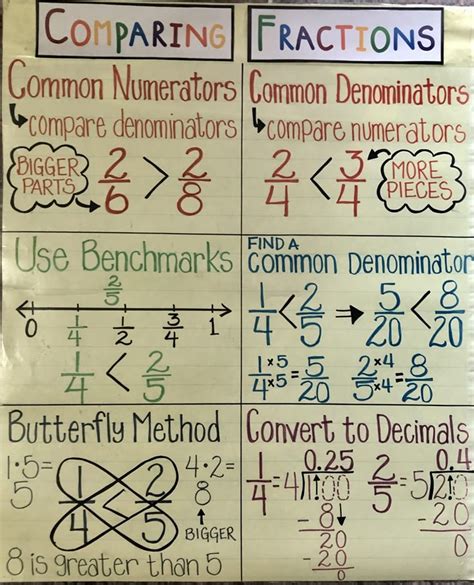 COMPARING FRACTIONS
Common Numerators
compare denominators
BIGGER
PARTS
2/6 > 2/8
Common Denominators
compare numerators
2/4 < 3/4
MORE
PIECES
Use Benchmarks
2/5
0 1/4 1/2 3/4 1
1/4 < 2/5
FIND A
Common Denominator
1/4 < 2/5 → 5/20 < 8/20
1×5/4×5 = 5/20 2×4/5×4 = 8/20
Butterfly Method
1·5=
5
1/4 < 2/5
4·2=
8
↑
BIGGER
8 is greater than 5
Convert to Decimals
1/4 = 4 1.00 0.25
-8
20
-20
0
2/5 = 5 2.0 0.4
-20
0